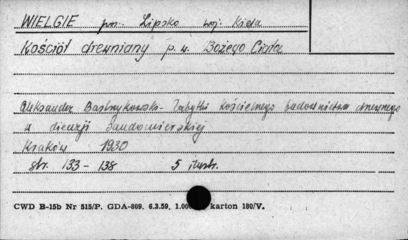 WIELGIE pow. Lipsko woj. Kielce
Kościół drewniany p.w. Bożego Ciała
Aleksander Bastrzykowski - Zabytki kościelnego budownictwa drewnianego
w diecezji Sandomierskiej
Kraków 1930
str. 133 - 138 5 ilustr.
CWD B-15b Nr 515/P. GDA-809. 6.3.59. 1.000 karton 180/V.